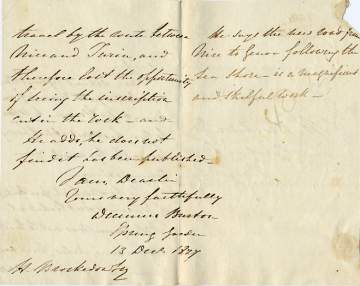 travel by the route between
Nice and Turin, and
therefore lost the opportunity
of seeing the inscription
cut in the rock - and
He adds, he does not
find it has been published -
I am, Dear Sir
Yours very faithfully
Decimus Burton
Spring Garden
13 Decr.
He says the new road from
Nice to Genoa following the
Sea Shore - is a magnificent
and skilful work -